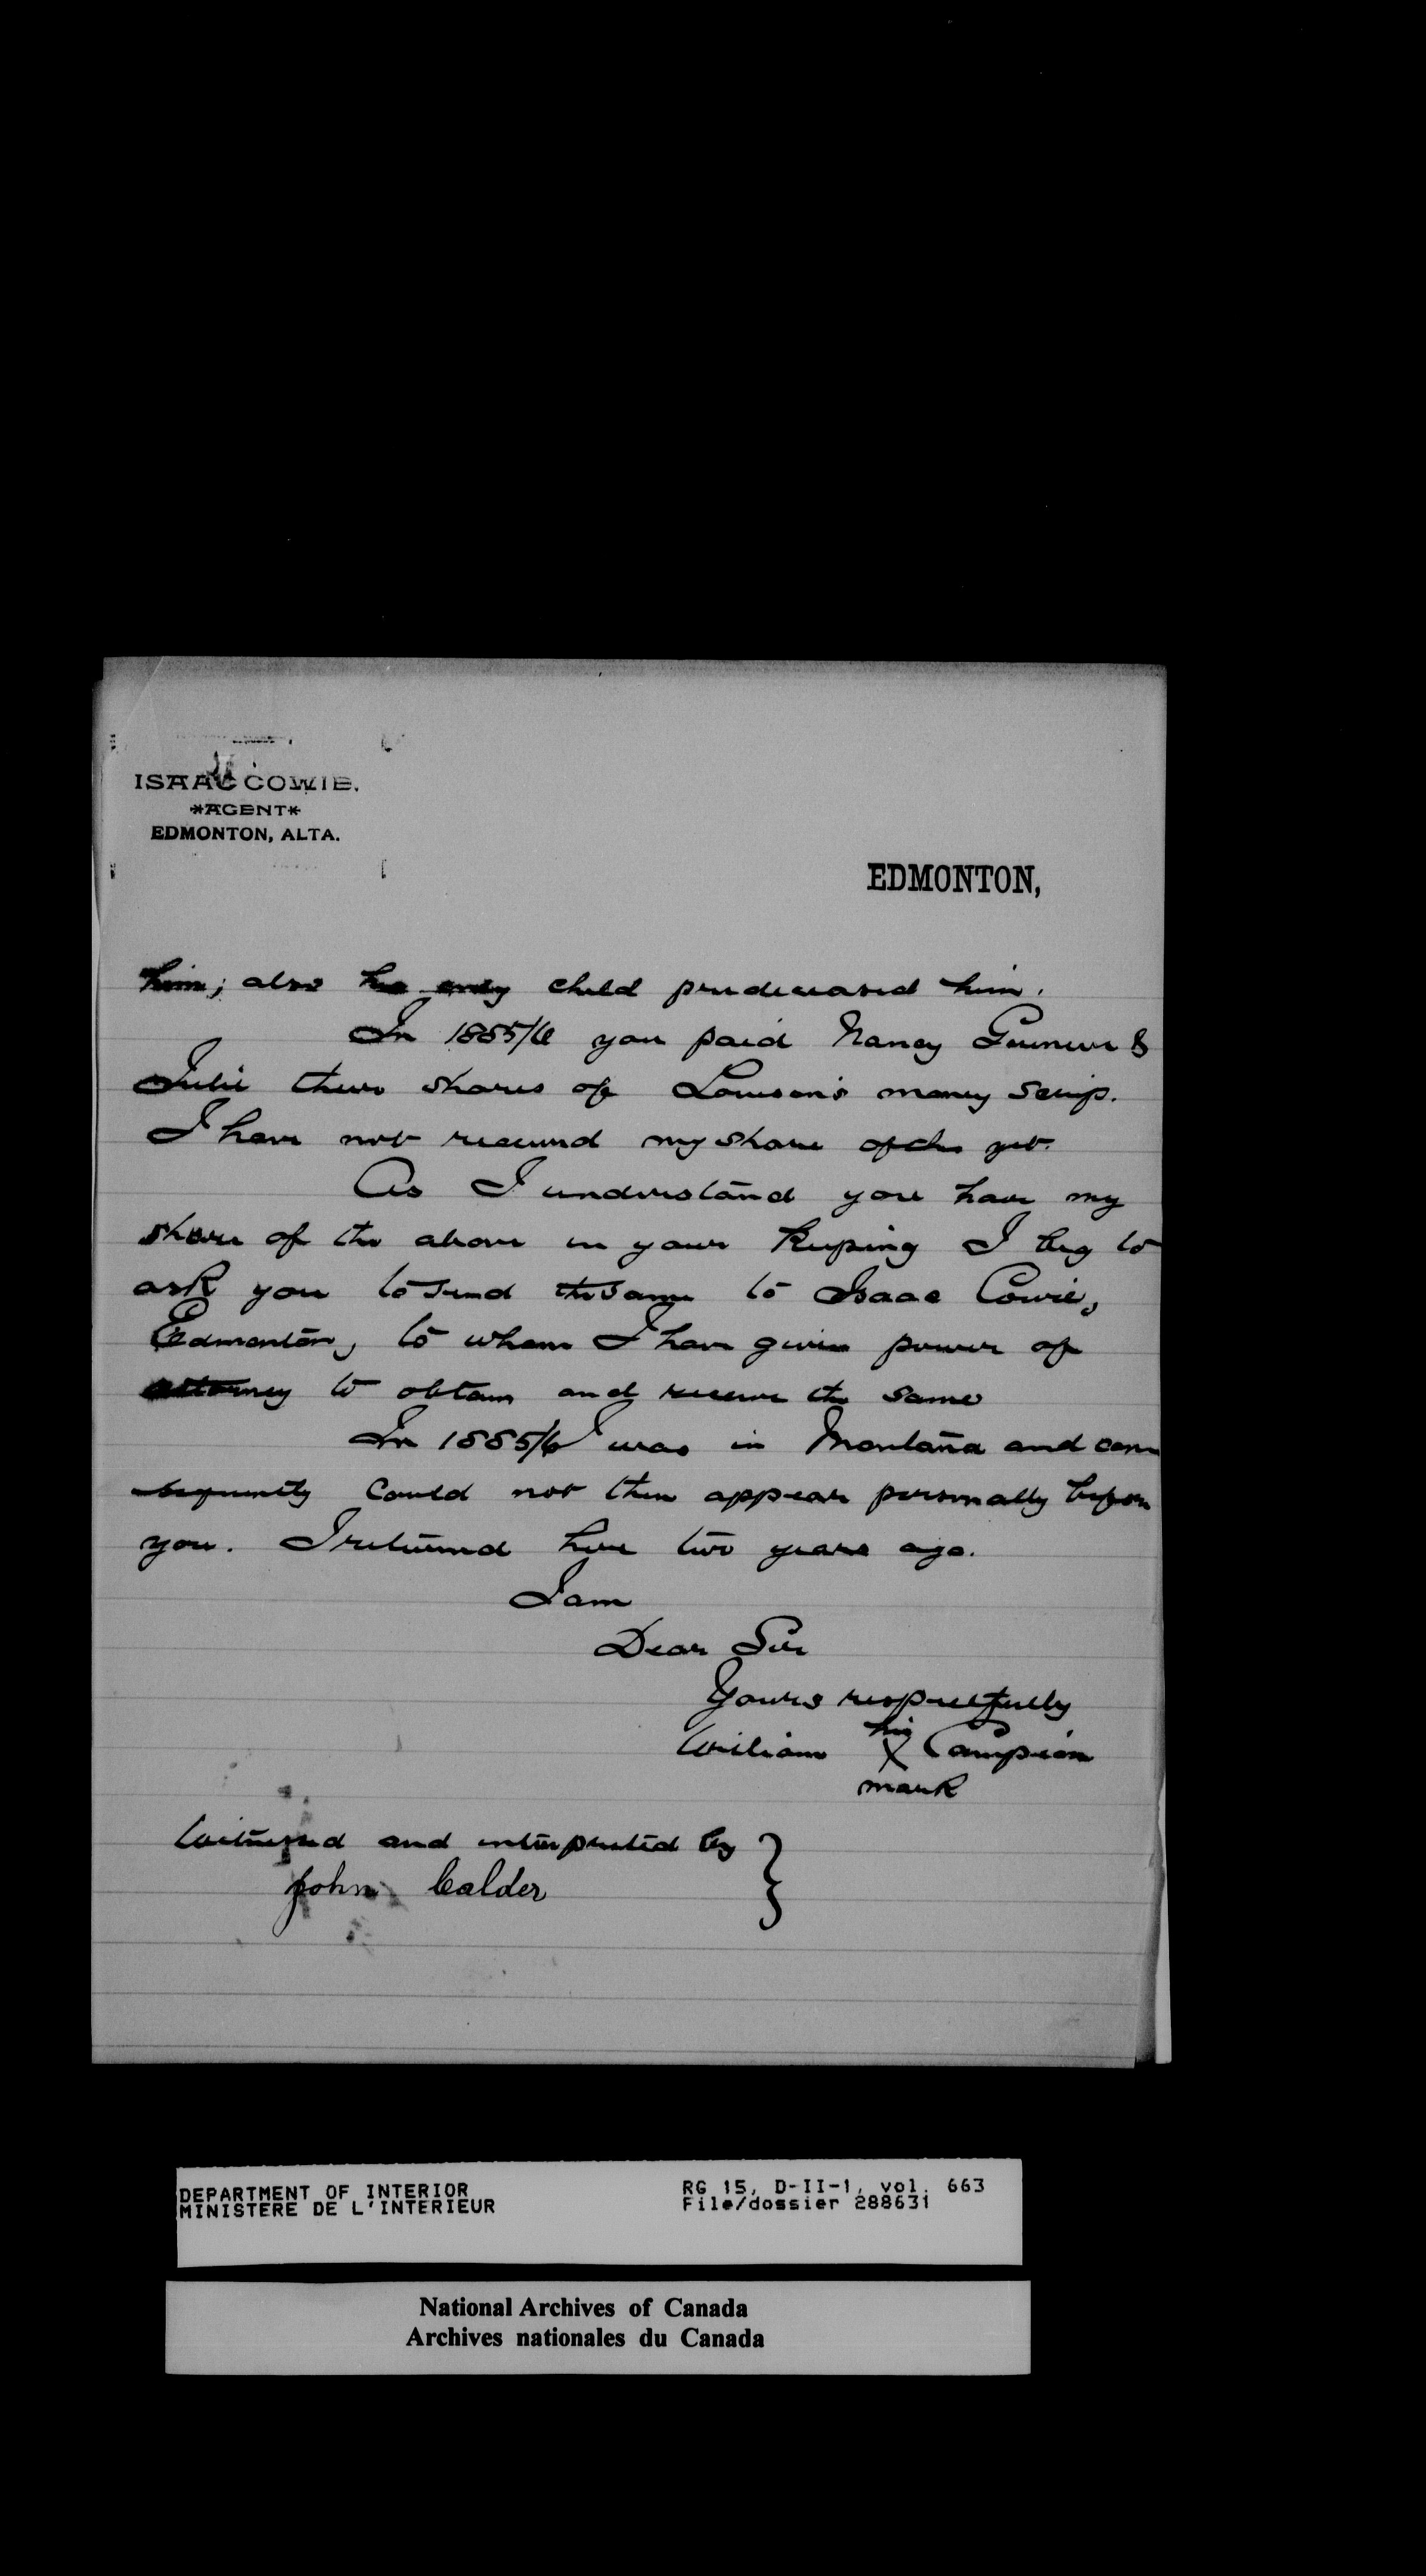 ISAAC COWIE.
*AGENT*
EDMONTON, ALTA.
EDMONTON,
him; also his only child predeceased him.
In 1885/6 you paid Nancy &
Julie their shares of Louison's money scrip.
I have not received my share of the yet.
As I understand you have my
share of the above in your keeping I beg to
ask you to send the same to Isaac Cowie,
Edmonton, to whom I have given power of
attorney to obtain and receive the same
In 1885/6 I was in Montana and con
sequently could not then appear personally before
you. I returned here two years ago.
I am
Dear Sir
Yours respectfully
his
William X Campion
mark
Witnessed and interpreted by }
John Calder
DEPARTMENT OF INTERIOR
MINISTERE DE L'INTERIEUR
RG 15, D-II-1, vol. 663
File/dossier 288631
National Archives of Canada
Archives nationales du Canada